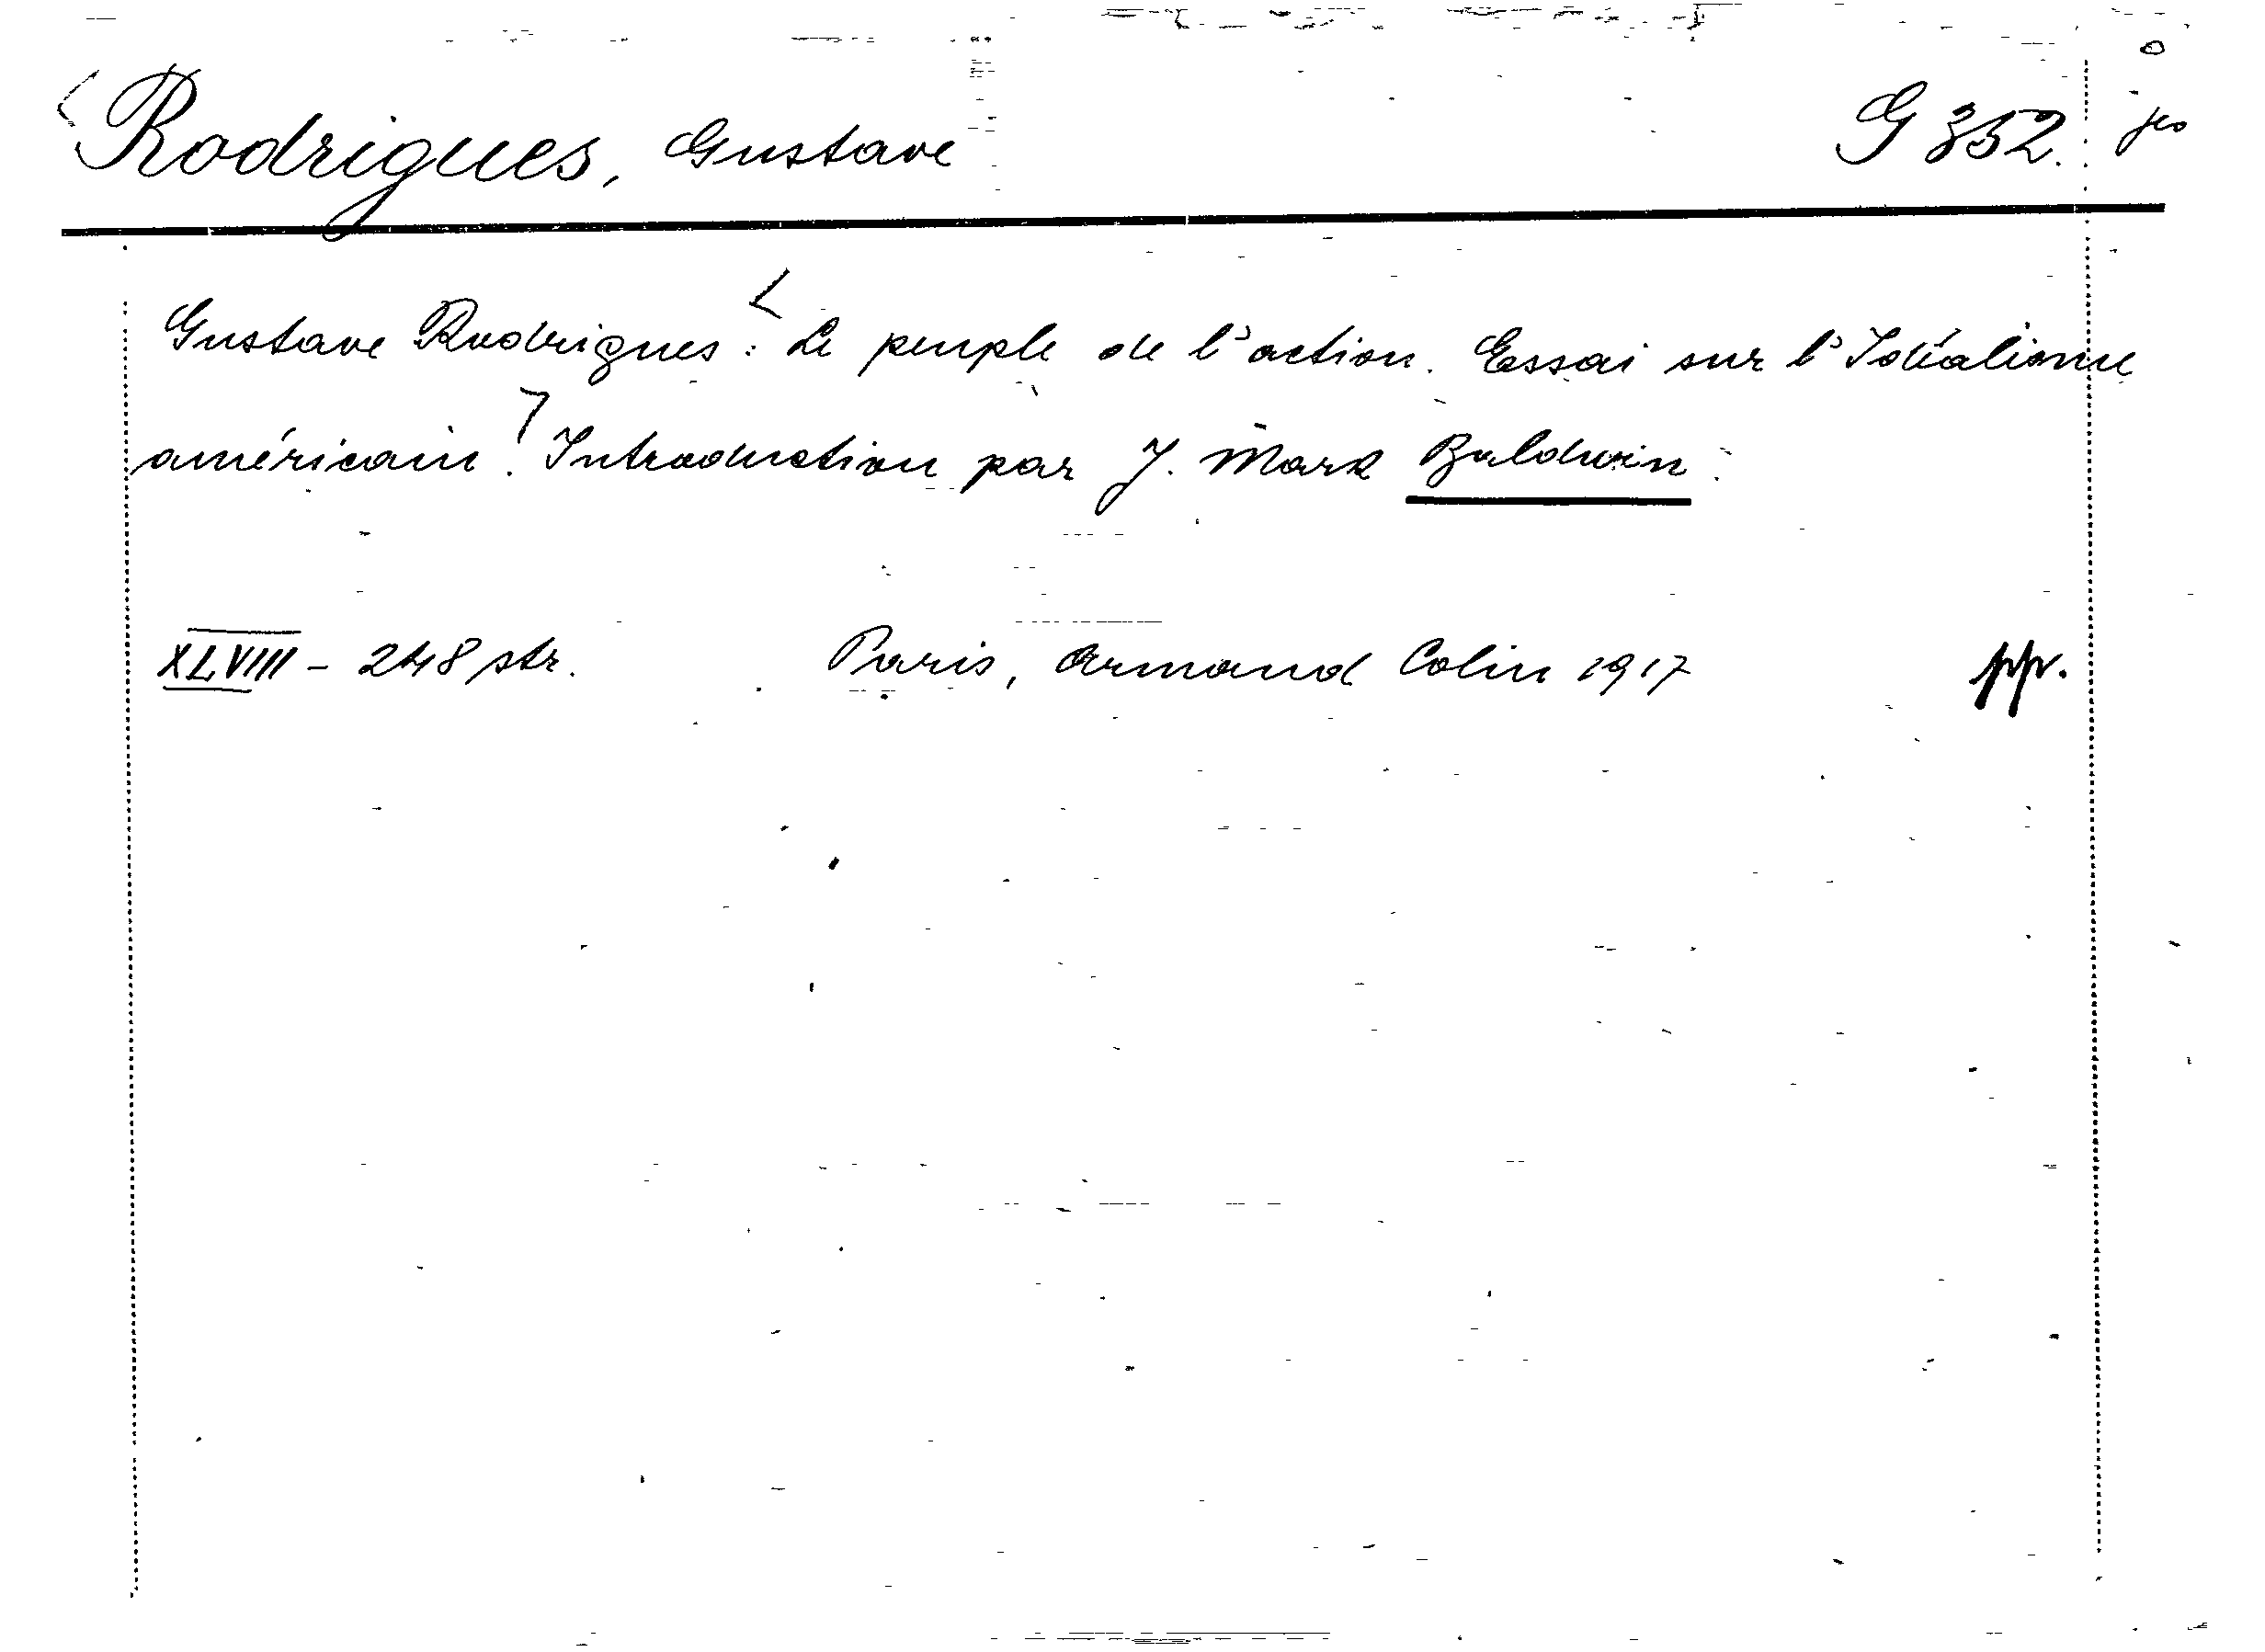 Rodrigues, Gustave G 352.
Gustave Rodrigues: Le peuple de l'action. Essai sur l'Idéalisme
américain. Introduction par J. Mark Baldwin.
XLVIII - 248 str. Paris, Armand Colin 1917 pp.